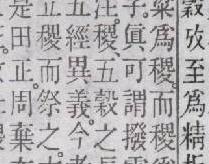 穀攷至爲精
粱爲稷。而稷
子。眞可謂撥雲
注。稷、五穀之長
五經異義。今
立稷而祭之。
是田正周棄